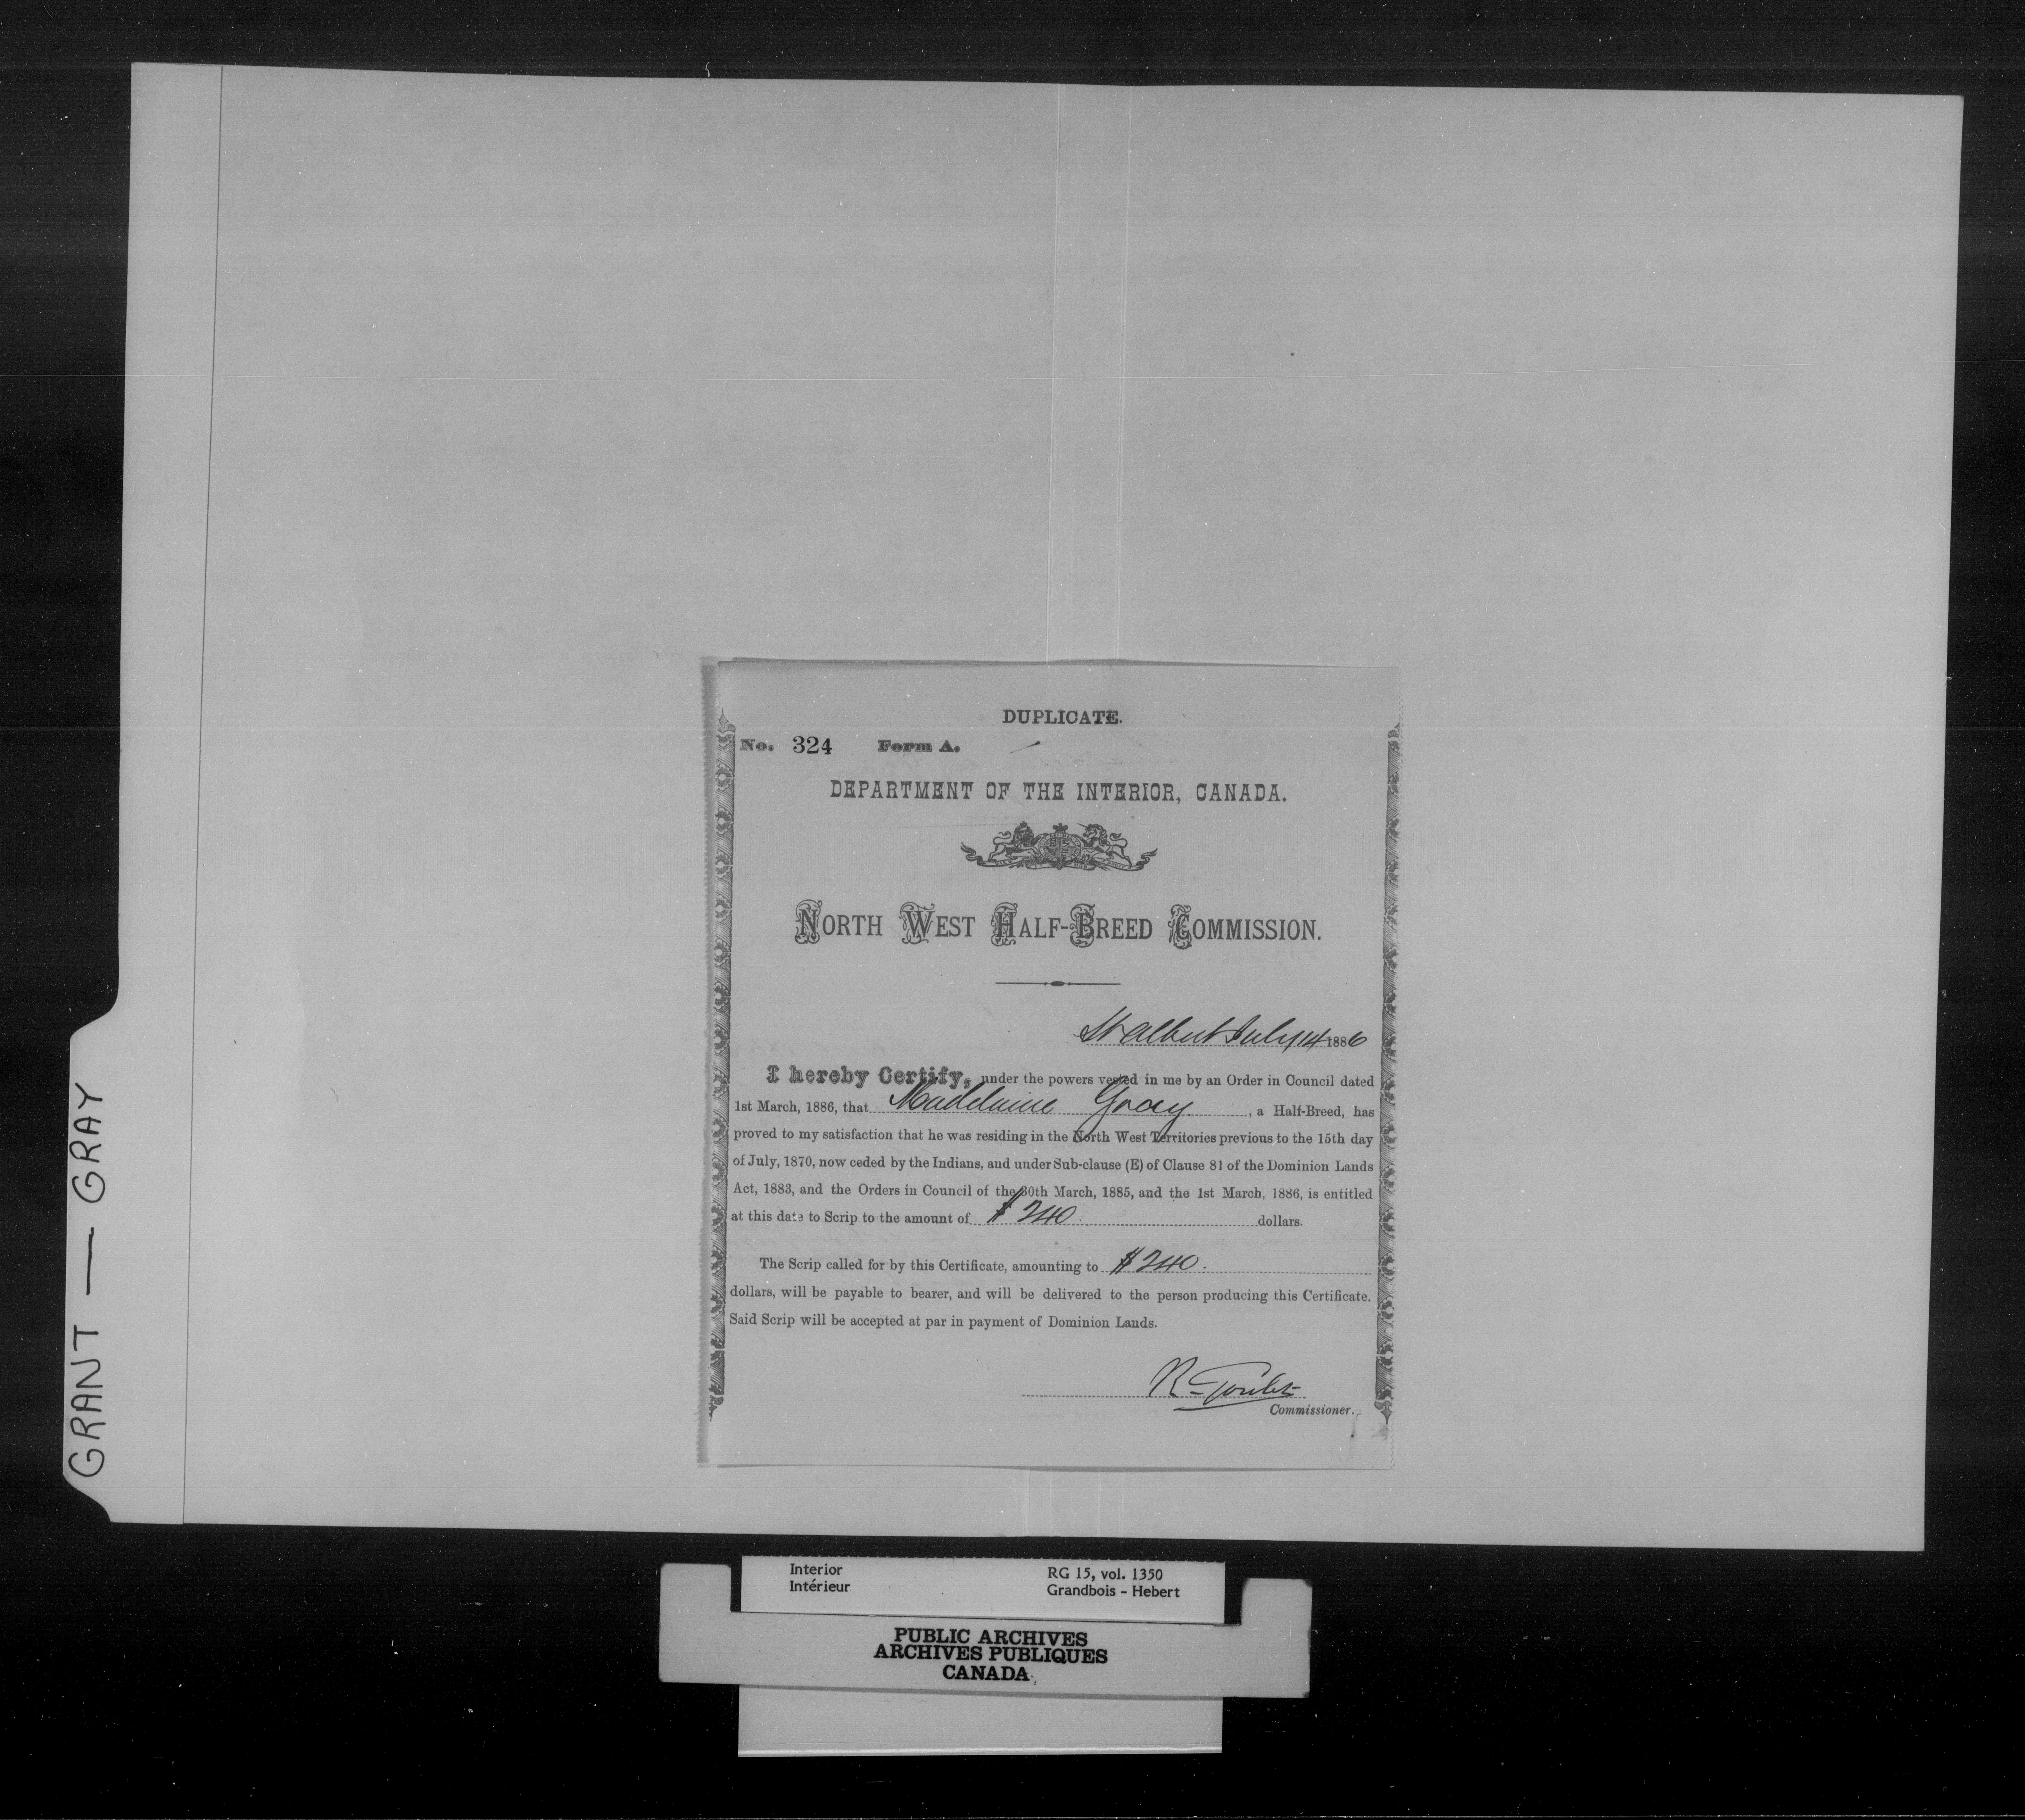 GRANT — GRAY
DUPLICATE.
No. 324 Form A.
DEPARTMENT OF THE INTERIOR, CANADA.
NORTH WEST HALF-BREED COMMISSION.
St Albert July 14 1886
I hereby Certify, under the powers vested in me by an Order in Council dated
1st March, 1886, that Madelaine Gray, a Half-Breed, has
proved to my satisfaction that he was residing in the North West Territories previous to the 15th day
of July, 1870, now ceded by the Indians, and under Sub-clause (E) of Clause 81 of the Dominion Lands
Act, 1883, and the Orders in Council of the 30th March, 1885, and the 1st March, 1886, is entitled
at this date to Scrip to the amount of $240 dollars.
The Scrip called for by this Certificate, amounting to $240.
dollars, will be payable to bearer, and will be delivered to the person producing this Certificate.
Said Scrip will be accepted at par in payment of Dominion Lands.
R Goulet
Commissioner.
Interior RG 15, vol. 1350
Intérieur Grandbois - Hebert
PUBLIC ARCHIVES
ARCHIVES PUBLIQUES
CANADA